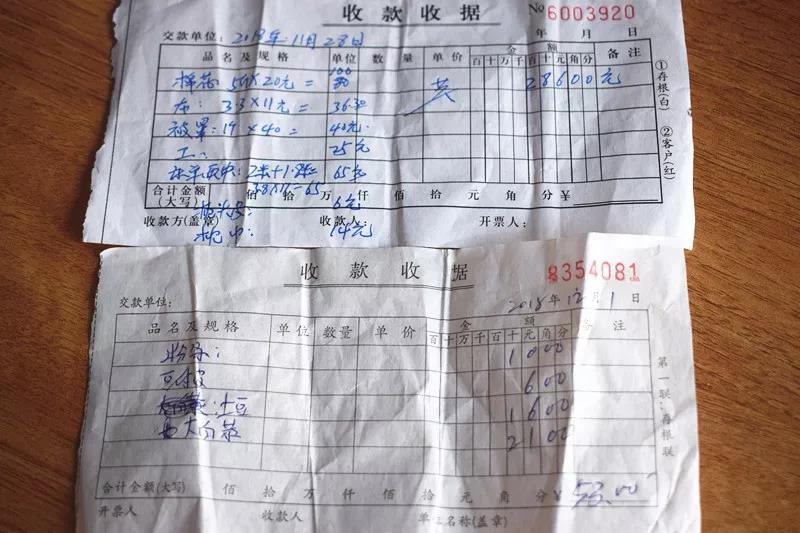 收款收据
№ 6003920
交款单位: 2018年11月28日 年 月 日
品名及规格 单位 数量 单价 金额 备注
百十万千百十元角分
棉花 5斤×20元= 100 28600元
布: 33×11元= 363 共
被罩: 19×40= 40元
工: 25元
65元
合计金额(大写) 佰 拾 万 仟 佰 拾 元 角 分 ¥
6元
收款方(盖章) 收款人: 开票人:
枕巾: 14元
①存根(白) ②客户(红)
收款收据
8354081
交款单位: 2018年12月1日
品名及规格 单位 数量 单价 金额 备注
百十万千百十元角分
粉条: 1000
600
土豆 1600
大白菜 2100
合计金额(大写) 佰 拾 万 仟 佰 拾 元 角 分 ¥ 53.00
开票人 收款人 单位名称(盖章)
第一联:存根联